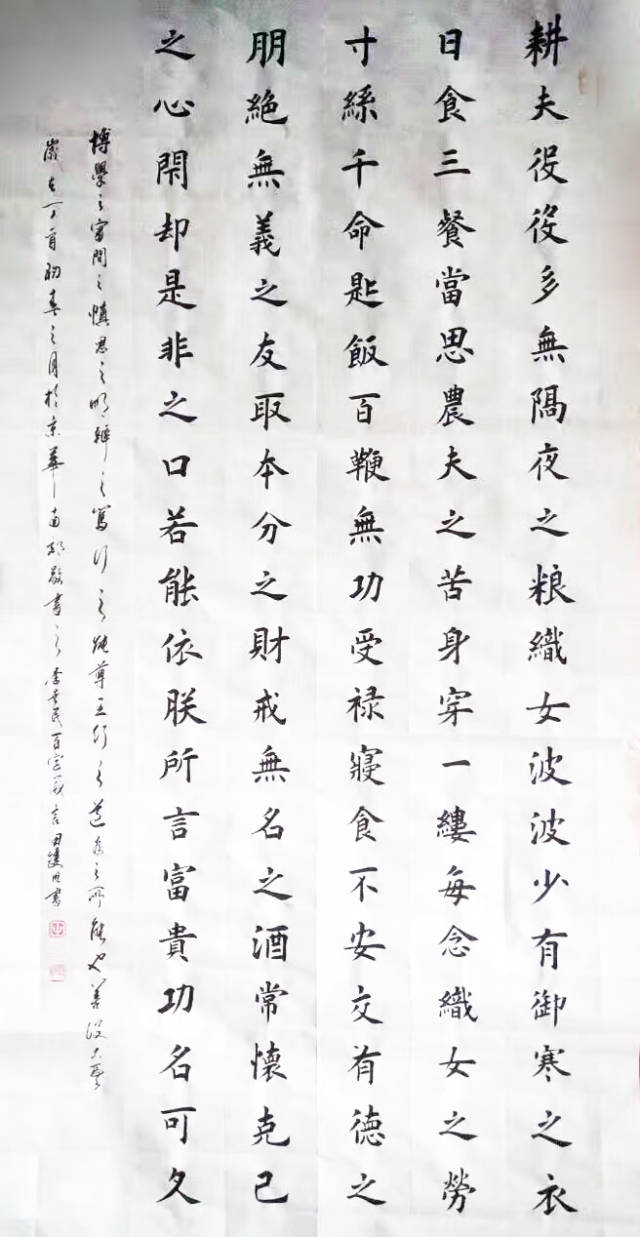 耕夫役役多無隔夜之粮織女波波少有御寒之衣
日食三餐當思農夫之苦身穿一縷每念織女之勞
寸絲千命匙飯百鞭無功受禄寢食不安交有德之
朋絕無義之友取本分之財戒無名之酒常懷克己
之心閑却是非之口若能依朕所言富貴功名可久
博學之審問之慎思之明辨之篤行之
歲在丁酉初春之月於京華南 書之 李世民百字箴言 書